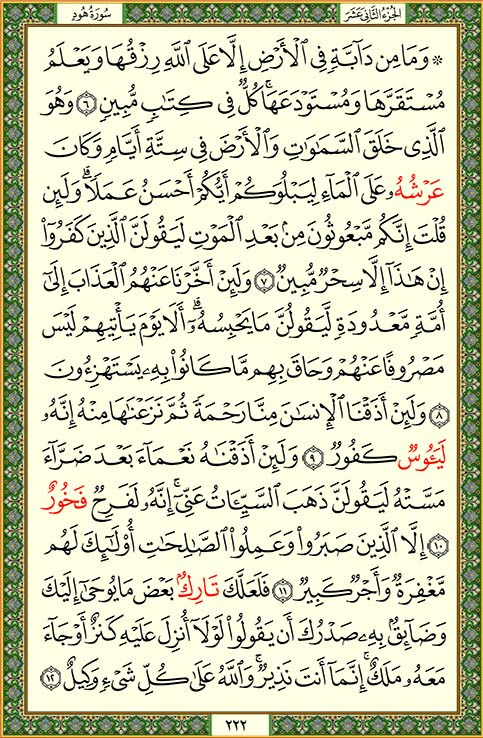 سُورَةُ هُودٍ الجُزْءُ الثَّانِي عَشَرَ
۞ وَمَا مِن دَآبَّةٍ فِي ٱلْأَرْضِ إِلَّا عَلَى ٱللَّهِ رِزْقُهَا وَيَعْلَمُ
مُسْتَقَرَّهَا وَمُسْتَوْدَعَهَاۚ كُلٌّ فِي كِتَٰبٍ مُّبِينٍ ٦ وَهُوَ
ٱلَّذِي خَلَقَ ٱلسَّمَٰوَٰتِ وَٱلْأَرْضَ فِي سِتَّةِ أَيَّامٍ وَكَانَ
عَرْشُهُۥ عَلَى ٱلْمَآءِ لِيَبْلُوَكُمْ أَيُّكُمْ أَحْسَنُ عَمَلًاۗ وَلَئِن
قُلْتَ إِنَّكُم مَّبْعُوثُونَ مِنۢ بَعْدِ ٱلْمَوْتِ لَيَقُولَنَّ ٱلَّذِينَ كَفَرُوٓاْ
إِنْ هَٰذَآ إِلَّا سِحْرٌ مُّبِينٌ ٧ وَلَئِنْ أَخَّرْنَا عَنْهُمُ ٱلْعَذَابَ إِلَىٰٓ
أُمَّةٍ مَّعْدُودَةٍ لَّيَقُولُنَّ مَا يَحْبِسُهُۥٓۗ أَلَا يَوْمَ يَأْتِيهِمْ لَيْسَ
مَصْرُوفًا عَنْهُمْ وَحَاقَ بِهِم مَّا كَانُواْ بِهِۦ يَسْتَهْزِءُونَ
٨ وَلَئِنْ أَذَقْنَا ٱلْإِنسَٰنَ مِنَّا رَحْمَةً ثُمَّ نَزَعْنَٰهَا مِنْهُ إِنَّهُۥ
لَيَـُٔوسٌ كَفُورٌ ٩ وَلَئِنْ أَذَقْنَٰهُ نَعْمَآءَ بَعْدَ ضَرَّآءَ
مَسَّتْهُ لَيَقُولَنَّ ذَهَبَ ٱلسَّيِّـَٔاتُ عَنِّيٓۚ إِنَّهُۥ لَفَرِحٌ فَخُورٌ
١٠ إِلَّا ٱلَّذِينَ صَبَرُواْ وَعَمِلُواْ ٱلصَّٰلِحَٰتِ أُوْلَٰٓئِكَ لَهُم
مَّغْفِرَةٌ وَأَجْرٌ كَبِيرٌ ١١ فَلَعَلَّكَ تَارِكٌۢ بَعْضَ مَا يُوحَىٰٓ إِلَيْكَ
وَضَآئِقٌۢ بِهِۦ صَدْرُكَ أَن يَقُولُواْ لَوْلَآ أُنزِلَ عَلَيْهِ كَنزٌ أَوْ جَآءَ
مَعَهُۥ مَلَكٌۚ إِنَّمَآ أَنتَ نَذِيرٌۚ وَٱللَّهُ عَلَىٰ كُلِّ شَيْءٍ وَكِيلٌ ١٢
٢٢٢